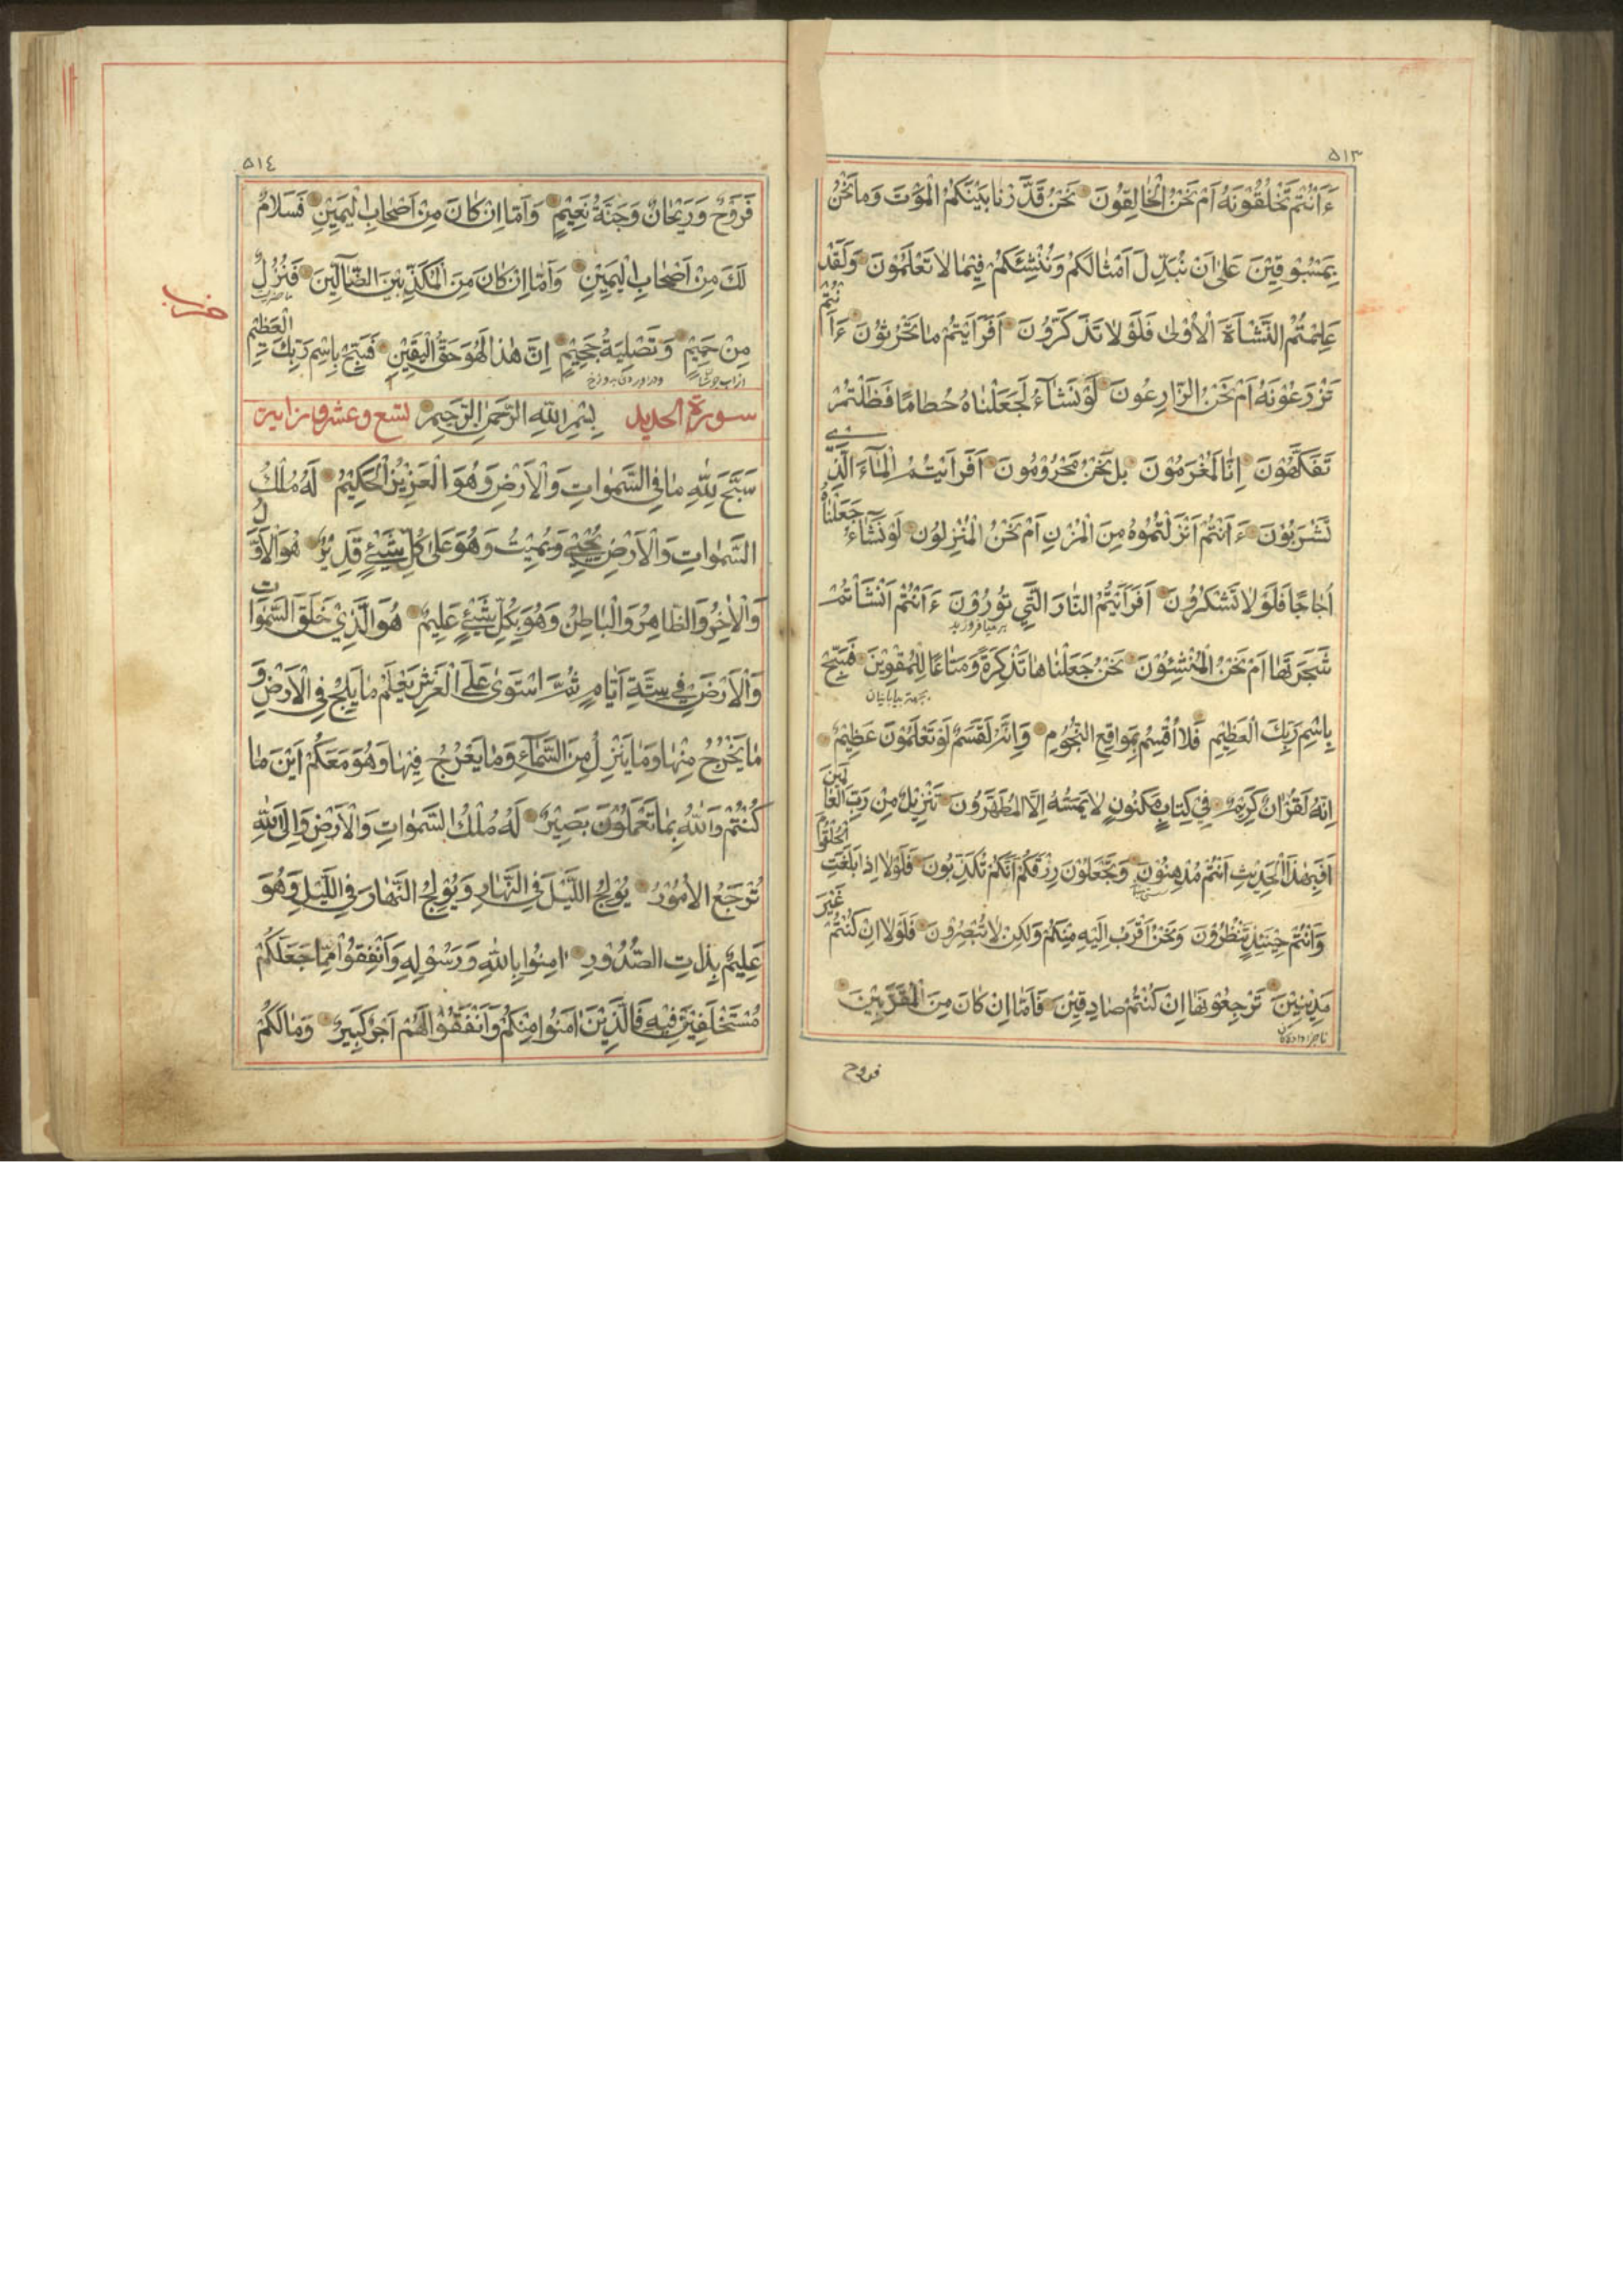 ٥١٣
ءَاَنْتُمْ تَخْلُقُونَهُ اَمْ نَحْنُ الْخٰالِقُونَ نَحْنُ قَدَّرْنٰا بَيْنَكُمُ الْمَوْتَ وَمٰا نَحْنُ
بِمَسْبُوقِيْنَ عَلىٰ اَنْ نُبَدِّلَ اَمْثٰالَكُمْ وَنُنْشِئَكُمْ فِيْمٰا لٰا تَعْلَمُوْنَ وَلَقَدْ
عَلِمْتُمُ النَّشْاَةَ الْاُوْلىٰ فَلَوْلٰا تَذَكَّرُونَ اَفَرَاَيْتُمْ مٰا تَحْرُثُوْنَ ءَاَنْتُمْ
تَزْرَعُوْنَهُ اَمْ نَحْنُ الزّٰارِعُونَ لَوْ نَشٰآءُ لَجَعَلْنٰاهُ حُطٰامًا فَظَلْتُمْ
تَفَكَّهُوْنَ اِنّٰا لَمُغْرَمُوْنَ بَلْ نَحْنُ مَحْرُوْمُونَ اَفَرَاَيْتُمُ الْمٰآءَ الَّذِي
تَشْرَبُوْنَ ءَاَنْتُمْ اَنْزَلْتُمُوْهُ مِنَ الْمُزْنِ اَمْ نَحْنُ الْمُنْزِلُونَ لَوْ نَشٰآءُ جَعَلْنٰاهُ
اُجٰاجًا فَلَوْلٰا تَشْكُرُونَ اَفَرَاَيْتُمُ النّٰارَ الَّتِي تُوْرُوْنَ ءَاَنْتُمْ اَنْشَأْتُمْ
شَجَرَتَهٰا اَمْ نَحْنُ الْمُنْشِئُوْنَ نَحْنُ جَعَلْنٰاهٰا تَذْكِرَةً وَمَتٰاعًا لِلْمُقْوِيْنَ فَسَبِّحْ
بِاسْمِ رَبِّكَ الْعَظِيْمِ فَلٰا اُقْسِمُ بِمَوٰاقِعِ النُّجُوْمِ وَاِنَّهُ لَقَسَمٌ لَوْ تَعْلَمُوْنَ عَظِيْمٌ
اِنَّهُ لَقُرْاٰنٌ كَرِيْمٌ فِي كِتٰابٍ مَكْنُونٍ لٰا يَمَسُّهُ اِلَّا الْمُطَهَّرُونَ تَنْزِيْلٌ مِنْ رَبِّ الْعٰالَمِيْنَ
اَفَبِهٰذَا الْحَدِيْثِ اَنْتُمْ مُدْهِنُوْنَ وَتَجْعَلُوْنَ رِزْقَكُمْ اَنَّكُمْ تُكَذِّبُونَ فَلَوْلٰا اِذٰا بَلَغَتِ الْحُلْقُوْمَ
وَاَنْتُمْ حِيْنَئِذٍ تَنْظُرُوْنَ وَنَحْنُ اَقْرَبُ اِلَيْهِ مِنْكُمْ وَلٰكِنْ لٰا تُبْصِرُوْنَ فَلَوْلٰا اِنْ كُنْتُمْ غَيْرَ
مَدِيْنِيْنَ تَرْجِعُوْنَهٰا اِنْ كُنْتُمْ صٰادِقِيْنَ فَاَمّٰا اِنْ كٰانَ مِنَ الْمُقَرَّبِيْنَ
فروح
٥١٤
فَرَوْحٌ وَرَيْحٰانٌ وَجَنَّةُ نَعِيْمٍ وَاَمّٰا اِنْ كٰانَ مِنْ اَصْحٰابِ الْيَمِيْنِ فَسَلٰامٌ
لَكَ مِنْ اَصْحٰابِ الْيَمِيْنِ وَاَمّٰا اِنْ كٰانَ مِنَ الْمُكَذِّبِيْنَ الضّٰآلِّيْنَ فَنُزُلٌ
مِنْ حَمِيْمٍ وَتَصْلِيَةُ جَحِيْمٍ اِنَّ هٰذٰا لَهُوَ حَقُّ الْيَقِيْنِ فَسَبِّحْ بِاسْمِ رَبِّكَ الْعَظِيْمِ
سورة الحديد بِسْمِ اللّٰهِ الرَّحْمٰنِ الرَّحِيْمِ تسع وعشرون اية
سَبَّحَ لِلّٰهِ مٰا فِي السَّمٰوٰاتِ وَالْاَرْضِ وَهُوَ الْعَزِيْزُ الْحَكِيْمُ لَهُ مُلْكُ
السَّمٰوٰاتِ وَالْاَرْضِ يُحْيِي وَيُمِيْتُ وَهُوَ عَلىٰ كُلِّ شَيْئٍ قَدِيْرٌ هُوَ الْاَوَّلُ
وَالْاٰخِرُ وَالظّٰاهِرُ وَالْبٰاطِنُ وَهُوَ بِكُلِّ شَيْئٍ عَلِيْمٌ هُوَ الَّذِيْ خَلَقَ السَّمٰوٰاتِ
وَالْاَرْضَ فِي سِتَّةِ اَيّٰامٍ ثُمَّ اسْتَوىٰ عَلَى الْعَرْشِ يَعْلَمُ مٰا يَلِجُ فِي الْاَرْضِ وَ
مٰا يَخْرُجُ مِنْهٰا وَمٰا يَنْزِلُ مِنَ السَّمٰآءِ وَمٰا يَعْرُجُ فِيْهٰا وَهُوَ مَعَكُمْ اَيْنَ مٰا
كُنْتُمْ وَاللّٰهُ بِمٰا تَعْمَلُوْنَ بَصِيْرٌ لَهُ مُلْكُ السَّمٰوٰاتِ وَالْاَرْضِ وَاِلَى اللّٰهِ
تُرْجَعُ الْاُمُوْرُ يُوْلِجُ اللَّيْلَ فِي النَّهٰارِ وَيُوْلِجُ النَّهٰارَ فِي اللَّيْلِ وَهُوَ
عَلِيْمٌ بِذٰاتِ الصُّدُوْرِ اٰمِنُوْا بِاللّٰهِ وَرَسُوْلِهِ وَاَنْفِقُوْا مِمّٰا جَعَلَكُمْ
مُسْتَخْلَفِيْنَ فِيْهِ فَالَّذِيْنَ اٰمَنُوْا مِنْكُمْ وَاَنْفَقُوْا لَهُمْ اَجْرٌ كَبِيْرٌ وَمٰا لَكُمْ